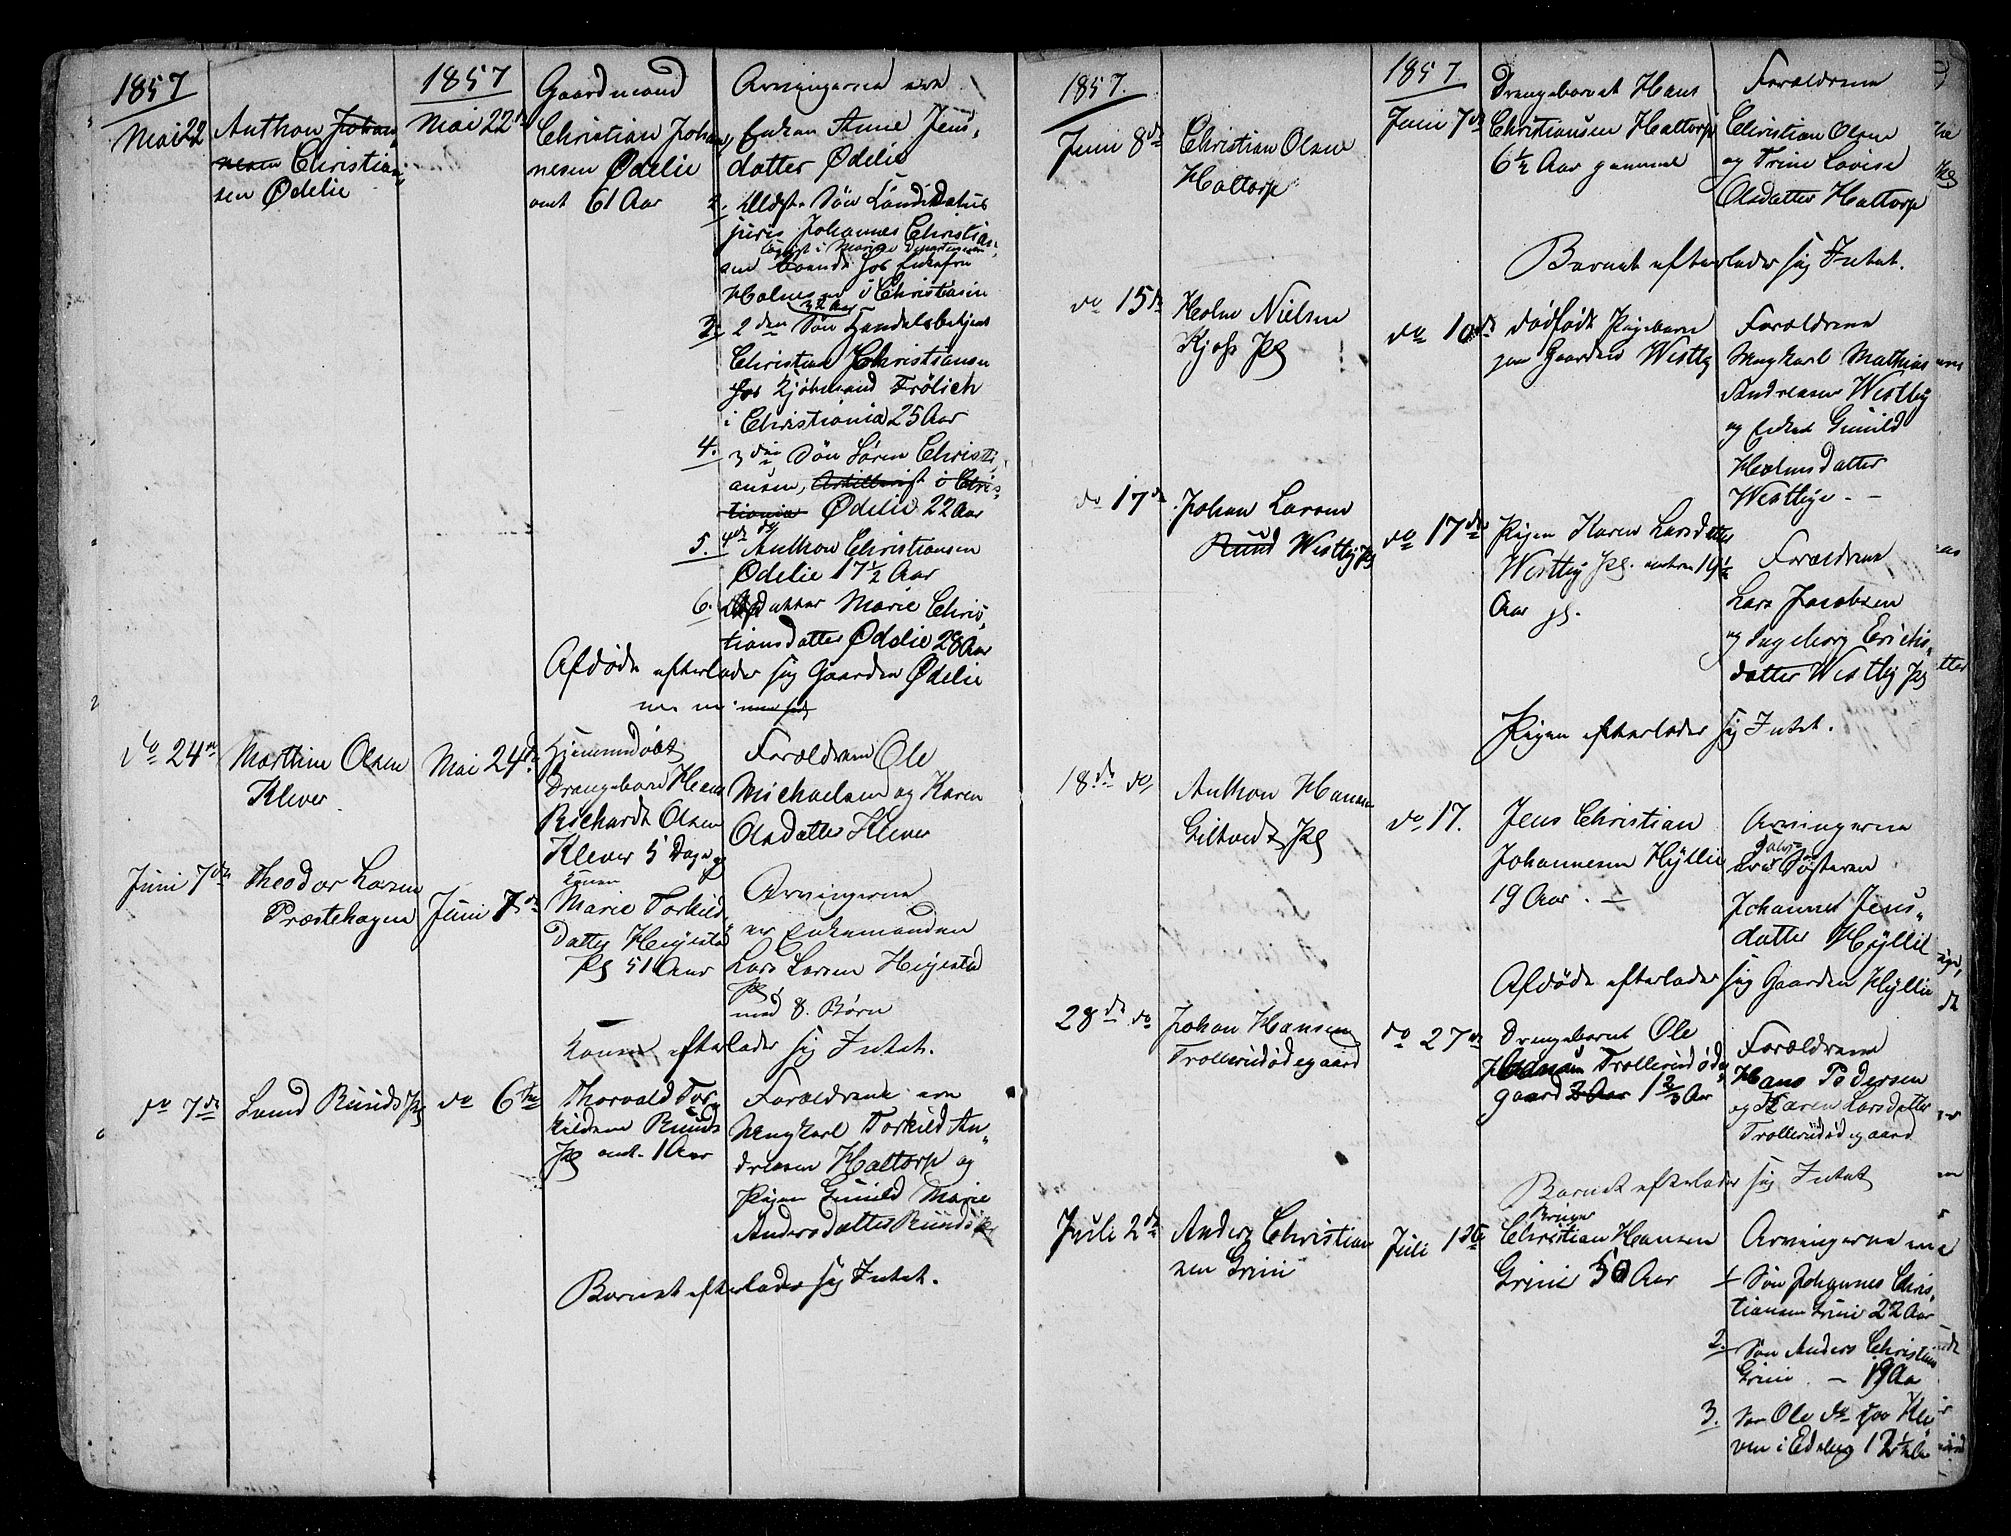 1857
Mai 22
Anthon Johan,
nesen Christian,
sen Ødelie
1857
Mai 22d
Gaardmand
Christian Johan,
nesen Ødelie
omt 61 Aar
Arvingerne ere
Enken Anne Jens,
datter Ødelie
2. Ældste Søn Candidatus
juris Johannes Christian,
sen boende hos Enkefru
Holmsen i Christiania
32 Aar
3. 2den Søn Handelsbetjent
Christian Christiansen
hos Kjøbmand Frölich
i Christiania 25 Aar
4. 3die Søn Søren Christi,
ansen, Artillerist i Chris,
tiania Ødelie 22 Aar
5. 4de do Anthon Christiansen
Ødelie 17 1/2 Aar
6. datter Marie Chris,
tiansdatter Ødelie 28 Aar
Afdøde efterlader sig Gaarden Ødelie
do 24de
Marthin Olsen
Klever
Mai 24d.
Hjemmedøbt
Drengebarn Hans
Richardt Olsen
Klever 5 Dage g
Forældrene Ole
Michaelsen og Karen
Olsdatter Klever
Juni 7de
Theodor Larsen
Præstehagen
Juni 7de
Konen
Marie Torkild,
datter Heijestad
Pl 51 Aar
Arvingerne
er Enkemanden
Lars Larsen Heijestad
Pl
med 8. Børn
Konen efterlader sig Intet.
do 7de
Lund Runds Pl
do 6te
Thorvald Tor,
kildsen Runds
Pl omt. 1 Aar
Forældrene ere
Ungkarl Torkild An,
dreasen Haltorp og
Pigen Gunild Marie
Andersdatter Runds Pl
Barnet efterlader sig Intet.
1857.
Juni 8de
Christian Olsen
Haltorp
1857.
Juni 7de
Drengebarnet Hans
Christiansen Haltorp
6 1/2 Aar gammel
Forældrene
Christian Olsen
og Trine Lovise
Olsdatter Haltorp
Barnet efterlader sig Intet.
do 15de
Holm Nielsen
Kjøss Pl
do 10de
dødfødt Pigebarn
paa Gaarden Westby
Forældrene
Ungkarl Mathias
Andreasen Westby
og Enken Gunild
Holmsdatter
Westbye. -
do 17de
Johan Larsen
Rund Westby Pl
do 17de
Pigen Karen Larsdatter
Westby Pl. omtren 19 1/2
Aar gl.
Forældrene
Lars Jacobsen
og Ingeborg Erichs,
datter Westby Pl
Pigen efterlader sig Intet.
18de do
Anthon Hansen
Giltvedt Pl
do 17.
Jens Christian
Johannesen Hÿllie
19 Aar. -
Arvingerne
ere Søsteren
Johanne Jens,
datter Hÿllie
Afdøde efterlader sig Gaarden Hÿllie
28de do
Johan Hansen
Trollerudødegaard
do 27de
Drengebarnet Ole
Hansen Trollerudøde,
gaard 2 Aar 1 2/3 Aar
Forældrene
Hans Pedersen
og Karen Larsdatter
Trollerudødegaard
Barnet efterlader sig Intet
Juli 2de
Anders Christian
sen Grini
Juli 1ste
Christian Hansen
Grini 50 Aar
Arvingerne ere
1 Søn Johannes Chris,
tiansen Grini 22 Aar
2. Søn Anders Christian
Grini - 19 Aa
3. Søn Ole do paa Kle
ven i Edsberg 12 1/2 Aa